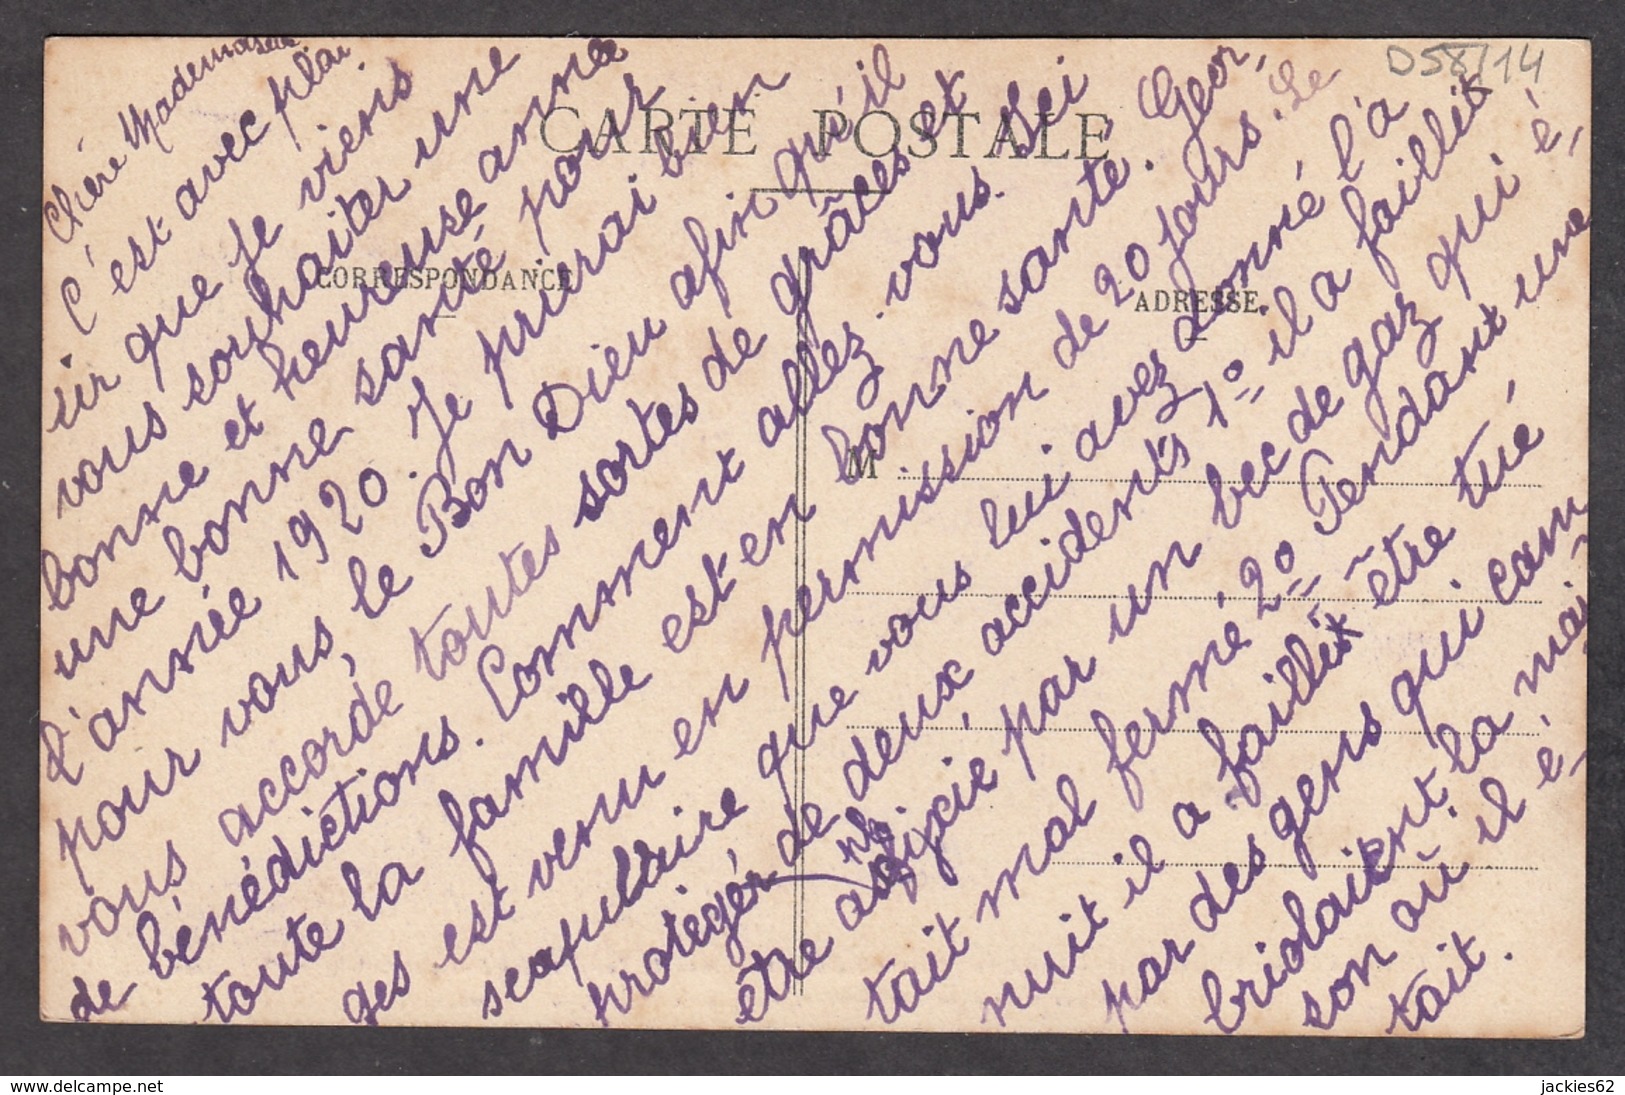 D58/14
CARTE POSTALE
CORRESPONDANCE
ADRESSE.
M
Chère Mademoiselle
C'est avec plai
sir que je viens
vous souhaiter une
bonne et heureuse année
une bonne santé pour
l'année 1920. Je prierai bien
pour vous, le Bon Dieu afin qu'il
vous accorde toutes sortes de grâces et
de bénédictions. Comment allez-vous. Ici
toute la famille est en bonne santé. Geor-
ges est venu en permission de 20 jours. Le
scapulaire que vous lui avez donné l'a
protégér de deux accidents 1º il a faillit
être asfixié par un bec de gaz qui é-
tait mal fermé, 2º Pendant une
nuit il a faillit être tué
par des gens qui cam
briolaient la mai-
son où il é-
tait.
www.delcampe.net
jackies62